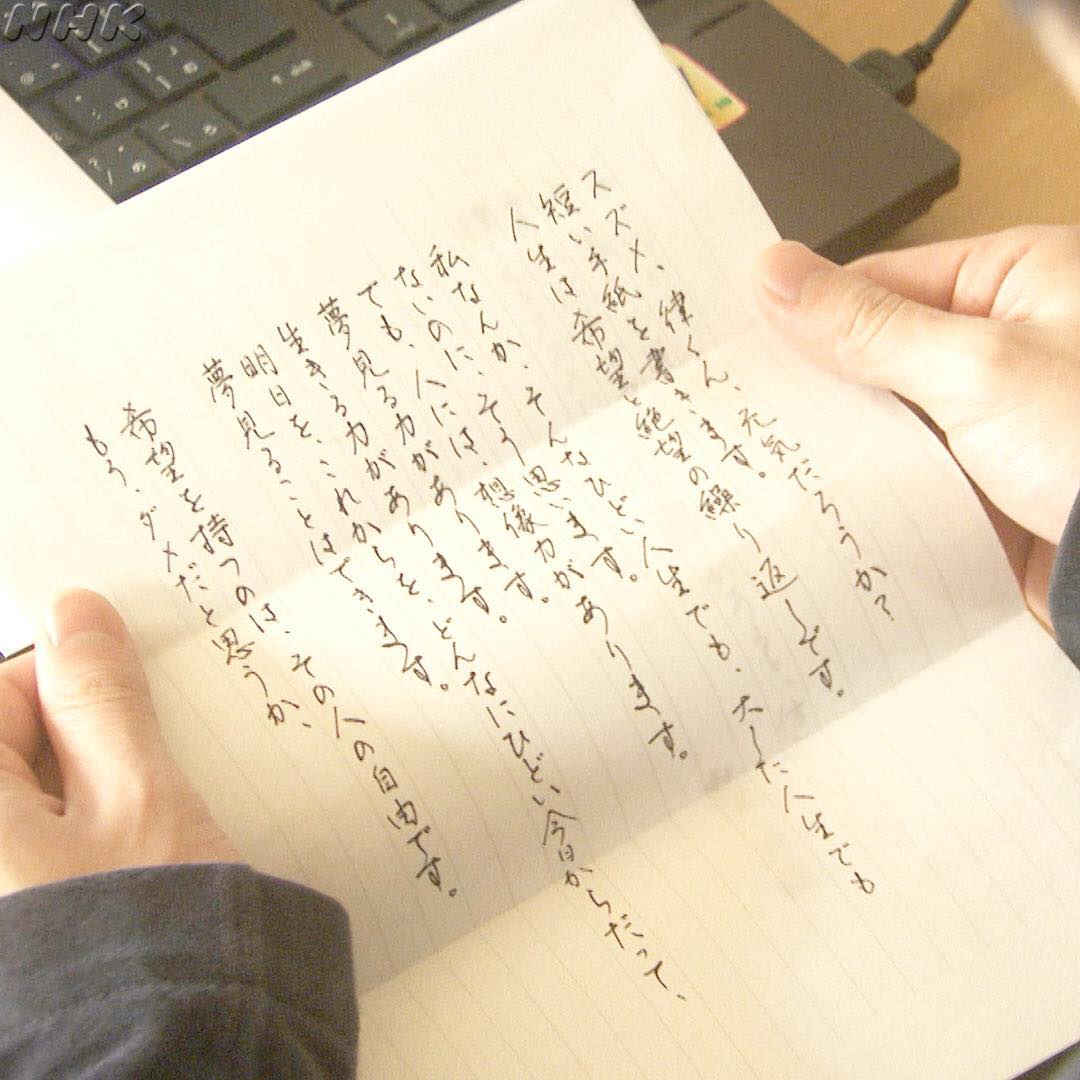 NHK
スズメ、律くん、元気だろうか?
短い手紙を書きます。
人生は希望と絶望の繰り返しです。
私なんか、そんなひどい人生でも、大した人生でも
ないのに、そう思います。
でも、人には、想像力があります。
夢見る力があります。
生きる力があります。
明日を、これからを、どんなにひどい今日からだって、
夢見ることはできます。
希望を持つのは、その人の自由です。
もう、ダメだと思うか、